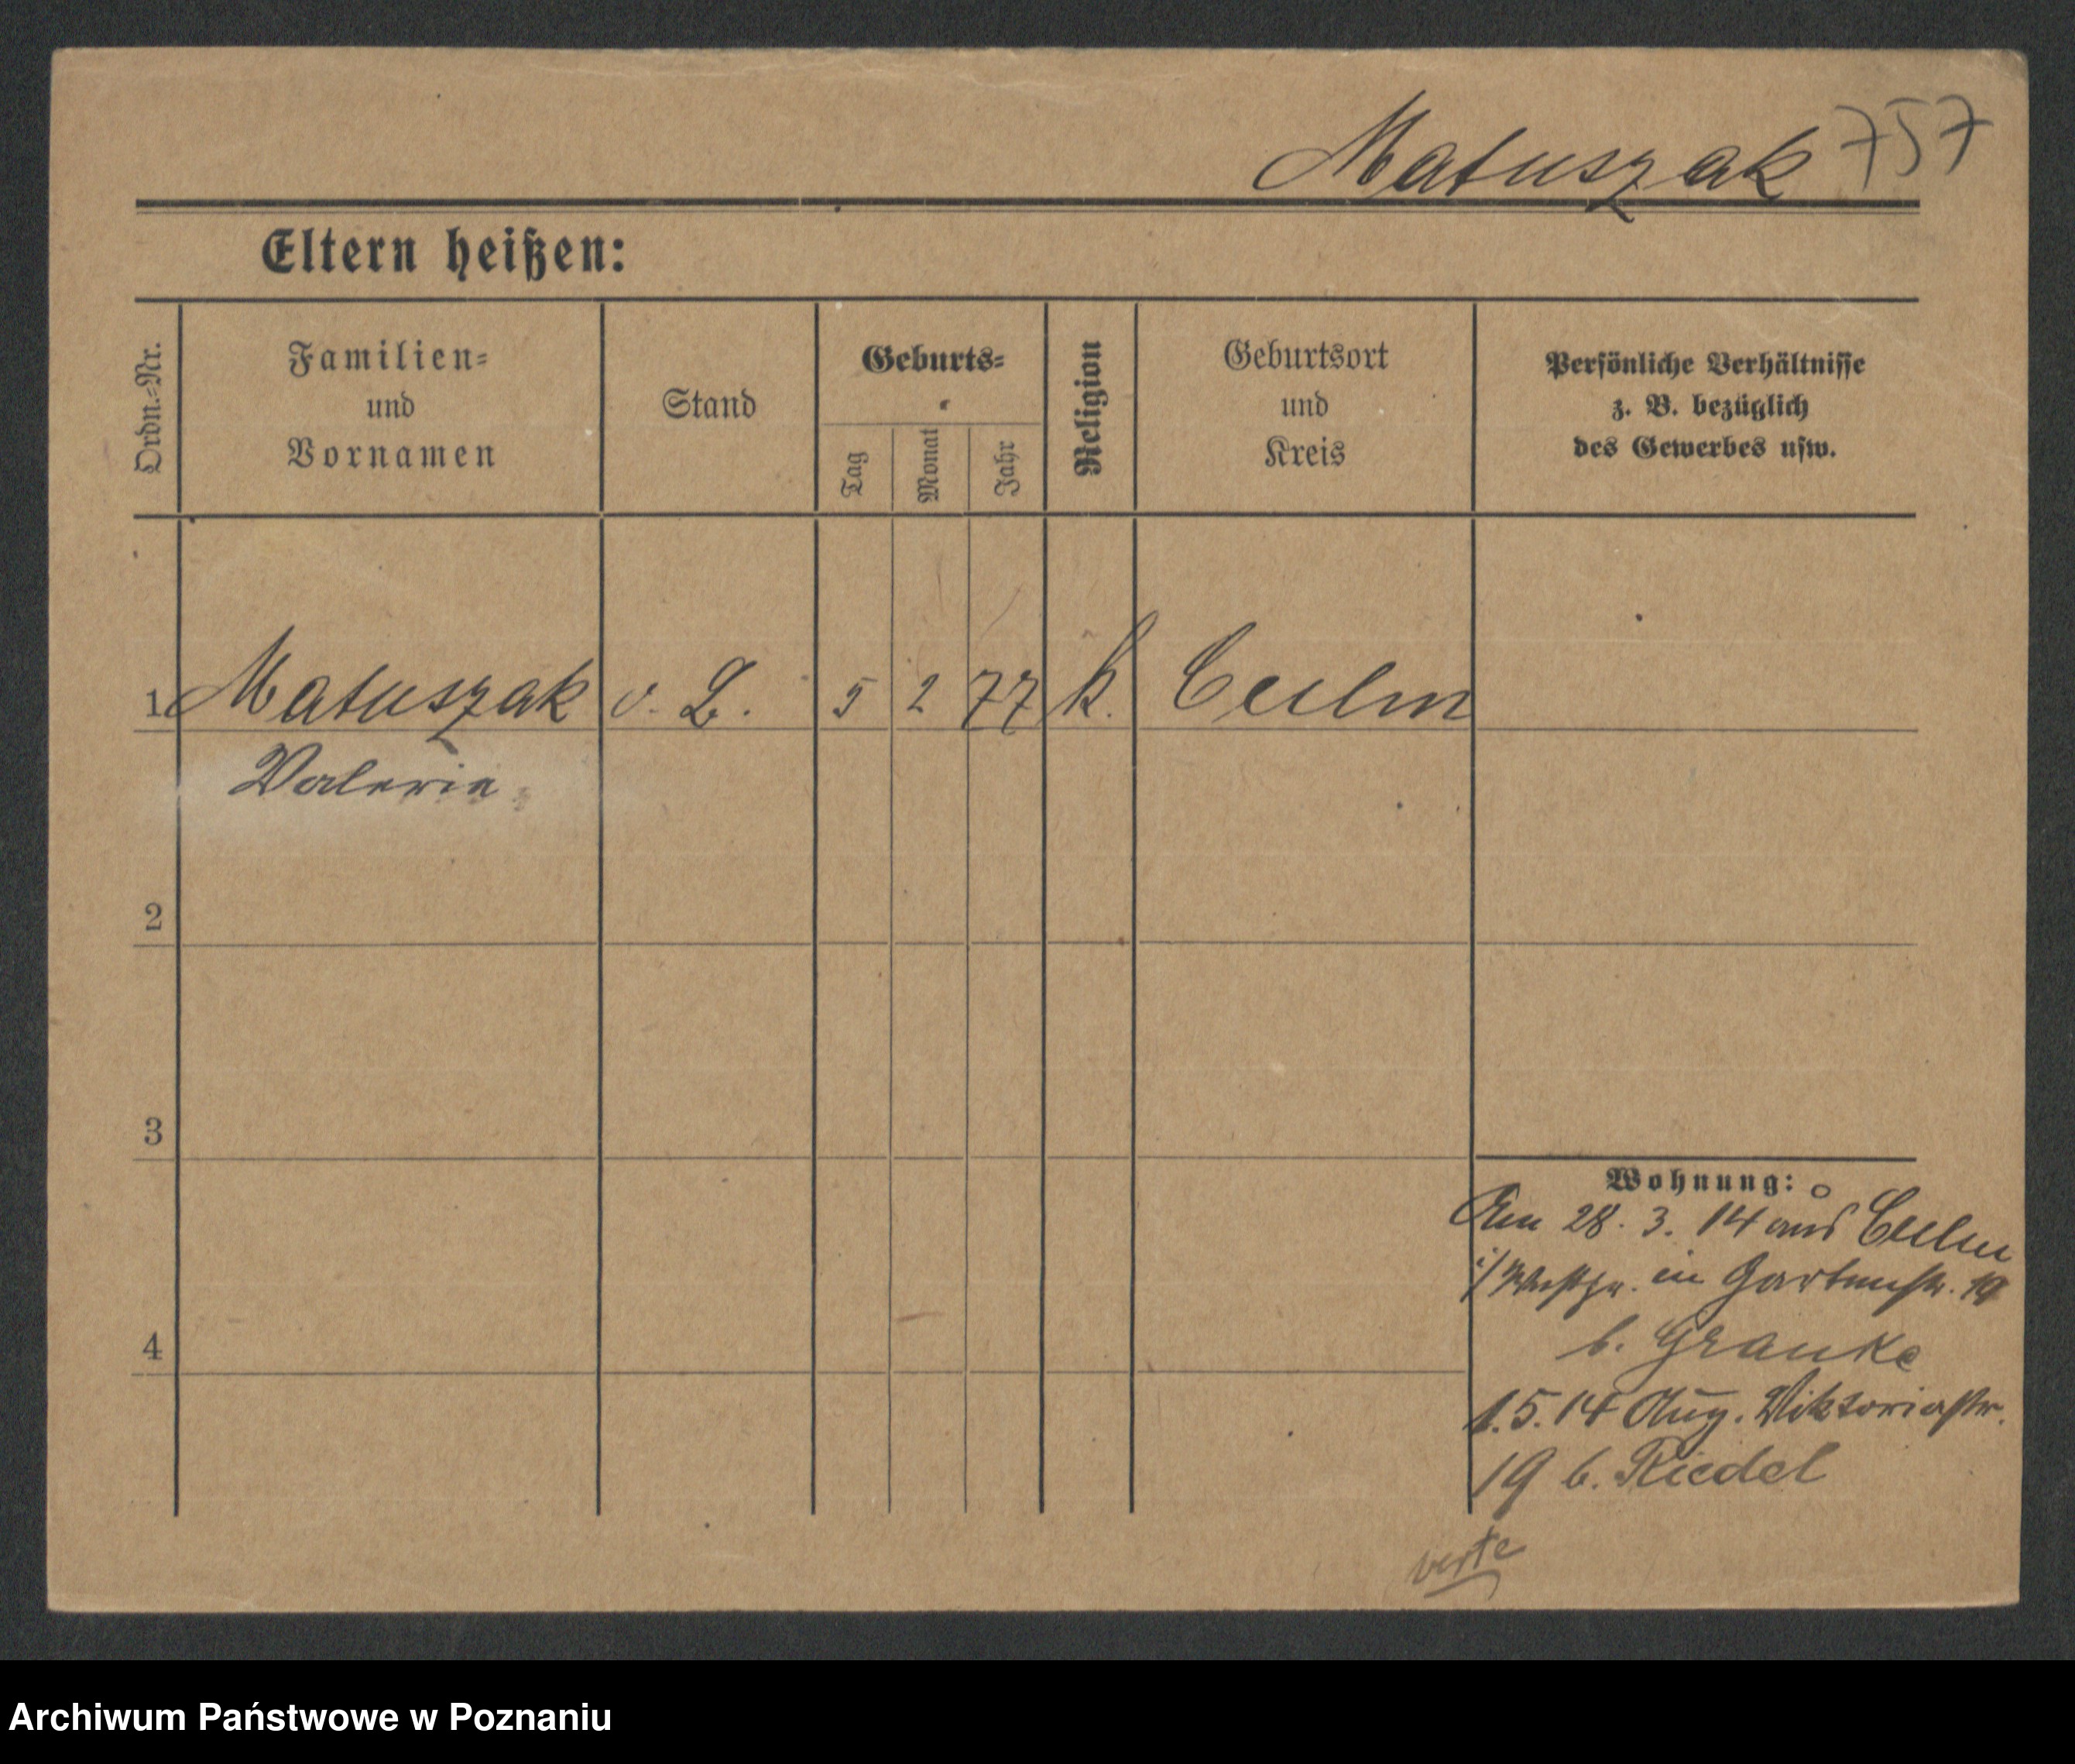 Matuszak 757
Eltern heißen:
Ordn.-Nr.
Familien-
und
Vornamen
Stand
Geburts-
Tag
Monat
Jahr
Religion
Geburtsort
und
Kreis
Persönliche Verhältnisse
z. B. bezüglich
des Gewerbes usw.
1 Matuszak o. L. 5 2 77 k. Culm
Valerie
2
3
4
Wohnung:
Am 28. 3. 14 aus Culm
i/Westpr. in Gartenstr. 19
b. Granke
1.5.14 Aug. Viktoriastr.
19 b. Riedel
verte
Archiwum Państwowe w Poznaniu